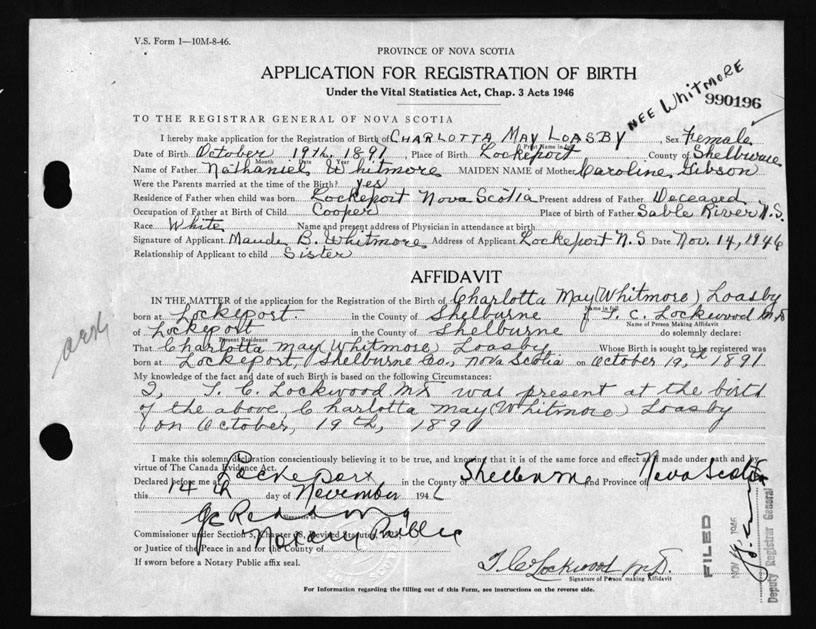 V.S. Form 1—10M-8-46.
PROVINCE OF NOVA SCOTIA
APPLICATION FOR REGISTRATION OF BIRTH
Under the Vital Statistics Act, Chap. 3 Acts 1946
NEE WhitmoRE
990196
TO THE REGISTRAR GENERAL OF NOVA SCOTIA
I hereby make application for the Registration of Birth of CHARLOTTA MAY LOASBY, Sex Female
Print Name in full
Date of Birth October 19th, 1891, Place of Birth Lockeport County of Shelburne
Month Day Year
Name of Father Nathaniel Whitmore MAIDEN NAME of Mother Caroline Gibson
Were the Parents married at the time of the Birth? yes
Residence of Father when child was born Lockeport Nova Scotia Present address of Father Deceased
Occupation of Father at Birth of Child Cooper Place of birth of Father Sable River N.S.
Race White Name and present address of Physician in attendance at birth
Signature of Applicant Maude B. Whitmore Address of Applicant Lockeport N.S Date Nov. 14, 1946
Relationship of Applicant to child Sister
AFFIDAVIT
IN THE MATTER of the application for the Registration of the Birth of Charlotta May (Whitmore) Loasby
Name in full
born at Lockeport. in the County of Shelburne I, T. C. Lockwood M.D
Name of Person Making Affidavit
of Lockeport in the County of Shelburne do solemnly declare:
Present Residence
That Charlotta May (Whitmore) Loasby Whose Birth is sought to be registered was
born at Lockeport, Shelburne Co., Nova Scotia on October 19,th 1891
My knowledge of the fact and date of such Birth is based on the following Circumstances:
I, T. C. Lockwood MD was present at the birth
of the above, Charlotta May (Whitmore) Loasby
on October, 19th, 1891
I make this solemn declaration conscientiously believing it to be true, and knowing that it is of the same force and effect as if made under oath and by
virtue of The Canada Evidence Act.
Declared before me at Lockeport in the County of Shelburne and Province of Nova Scotia
this 14th day of November 1946
Notary Public
Commissioner under Section 5, Chapter 38, Revised Statutes
or Justice of the Peace in and for the County of
If sworn before a Notary Public affix seal.
T. C. Lockwood M.D.
Signature of Person making Affidavit
For Information regarding the filling out of this Form, see instructions on the reverse side.
FILED
NOV 1946
Deputy Registrar General